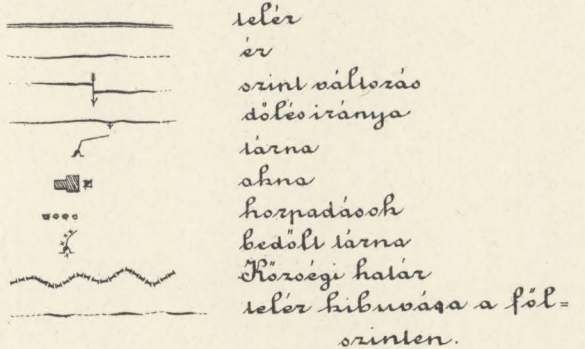 telér
ér
szint változás
dőlésiránya
tárna
akna
horpadások
bedőlt tárna
Községi határ
telér kibuvása a föl=
szinten.